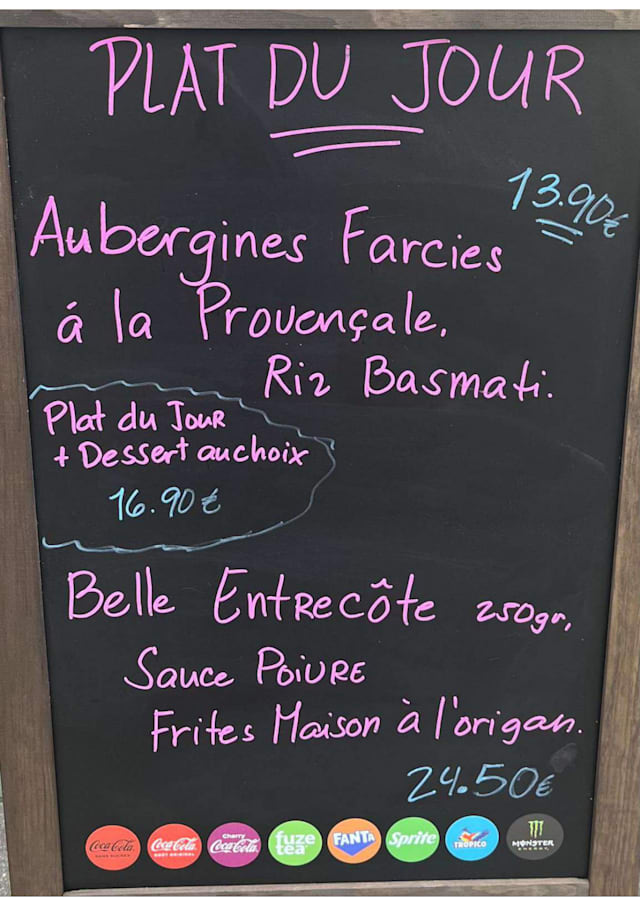 PLAT DU JOUR
13.90€
Aubergines Farcies
á la Provençale.
Riz Basmati.
Plat du Jour
+ Dessert au choix
16.90 €
Belle Entrecôte 250gr,
Sauce Poivre
Frites Maison à l'origan.
24.50€
Coca-Cola SANS SUCRES
Coca-Cola GOÛT ORIGINAL
Cherry Coca-Cola
fuze tea
FANTA
Sprite
TROPICO
MONSTER ENERGY